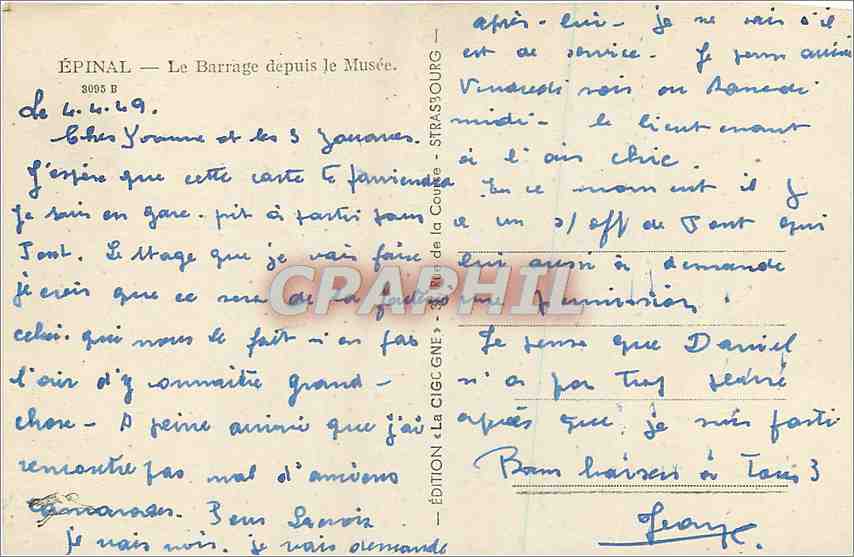 ÉPINAL — Le Barrage depuis le Musée.
3095 B
Le 4.4.49.
Chers Yvonne et les 3
J'espère que cette carte te parviendra
Je suis en gare - prêt à partir pour
Le stage que je vais faire
je crois que ce sera de la
celui. qui nous le fait - n'a pas
l'air d'y connaitre grand-
chose - A peine arrivé que j'ai
rencontré pas mal d'anciens
camarades.
je vais voir. je vais demande
après - lui - je ne sais s'il
est de service - Je pense arrivé
Vendredi soir ou Samedi
midi - le lieutenant
à l'air chic.
En ce moment il y
a un s/off de qui
lui aussi à demande
une permission.
Je pense que Daniel
n'a pas trop pleuré
après que je suis parti
Bons baisers à tous 3
— ÉDITION «La CIGOGNE» - Rue de la Course - STRASBOURG —
CPARPHIL